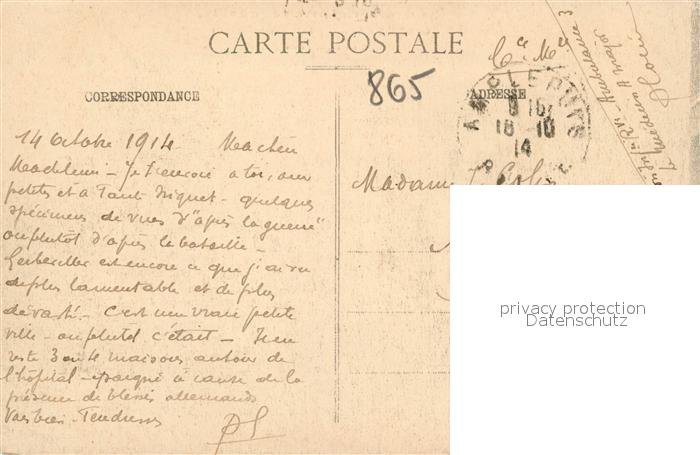 CARTE POSTALE
Cce Mre
865
CORRESPONDANCE
ADRESSE
16
16-10
14
14 octobre 1914 Ma chère
Madeleine - Je t'envoie à toi, aux
petits et à Tante quelques
spécimens de vues d'"après la guerre"
ou plutôt d'après la bataille -
Gerbeviller est encore ce que j'ai vu
de plus lamentable et de plus
dévasté - C'est une vraie petite
ville - ou plutôt c'était - Il en
reste 3 ou 4 maisons autour de
l'hôpital - épargné à cause de la
présence de blessés allemands
Tendresses
Madame
Le Médecin Major
privacy protection
Datenschutz